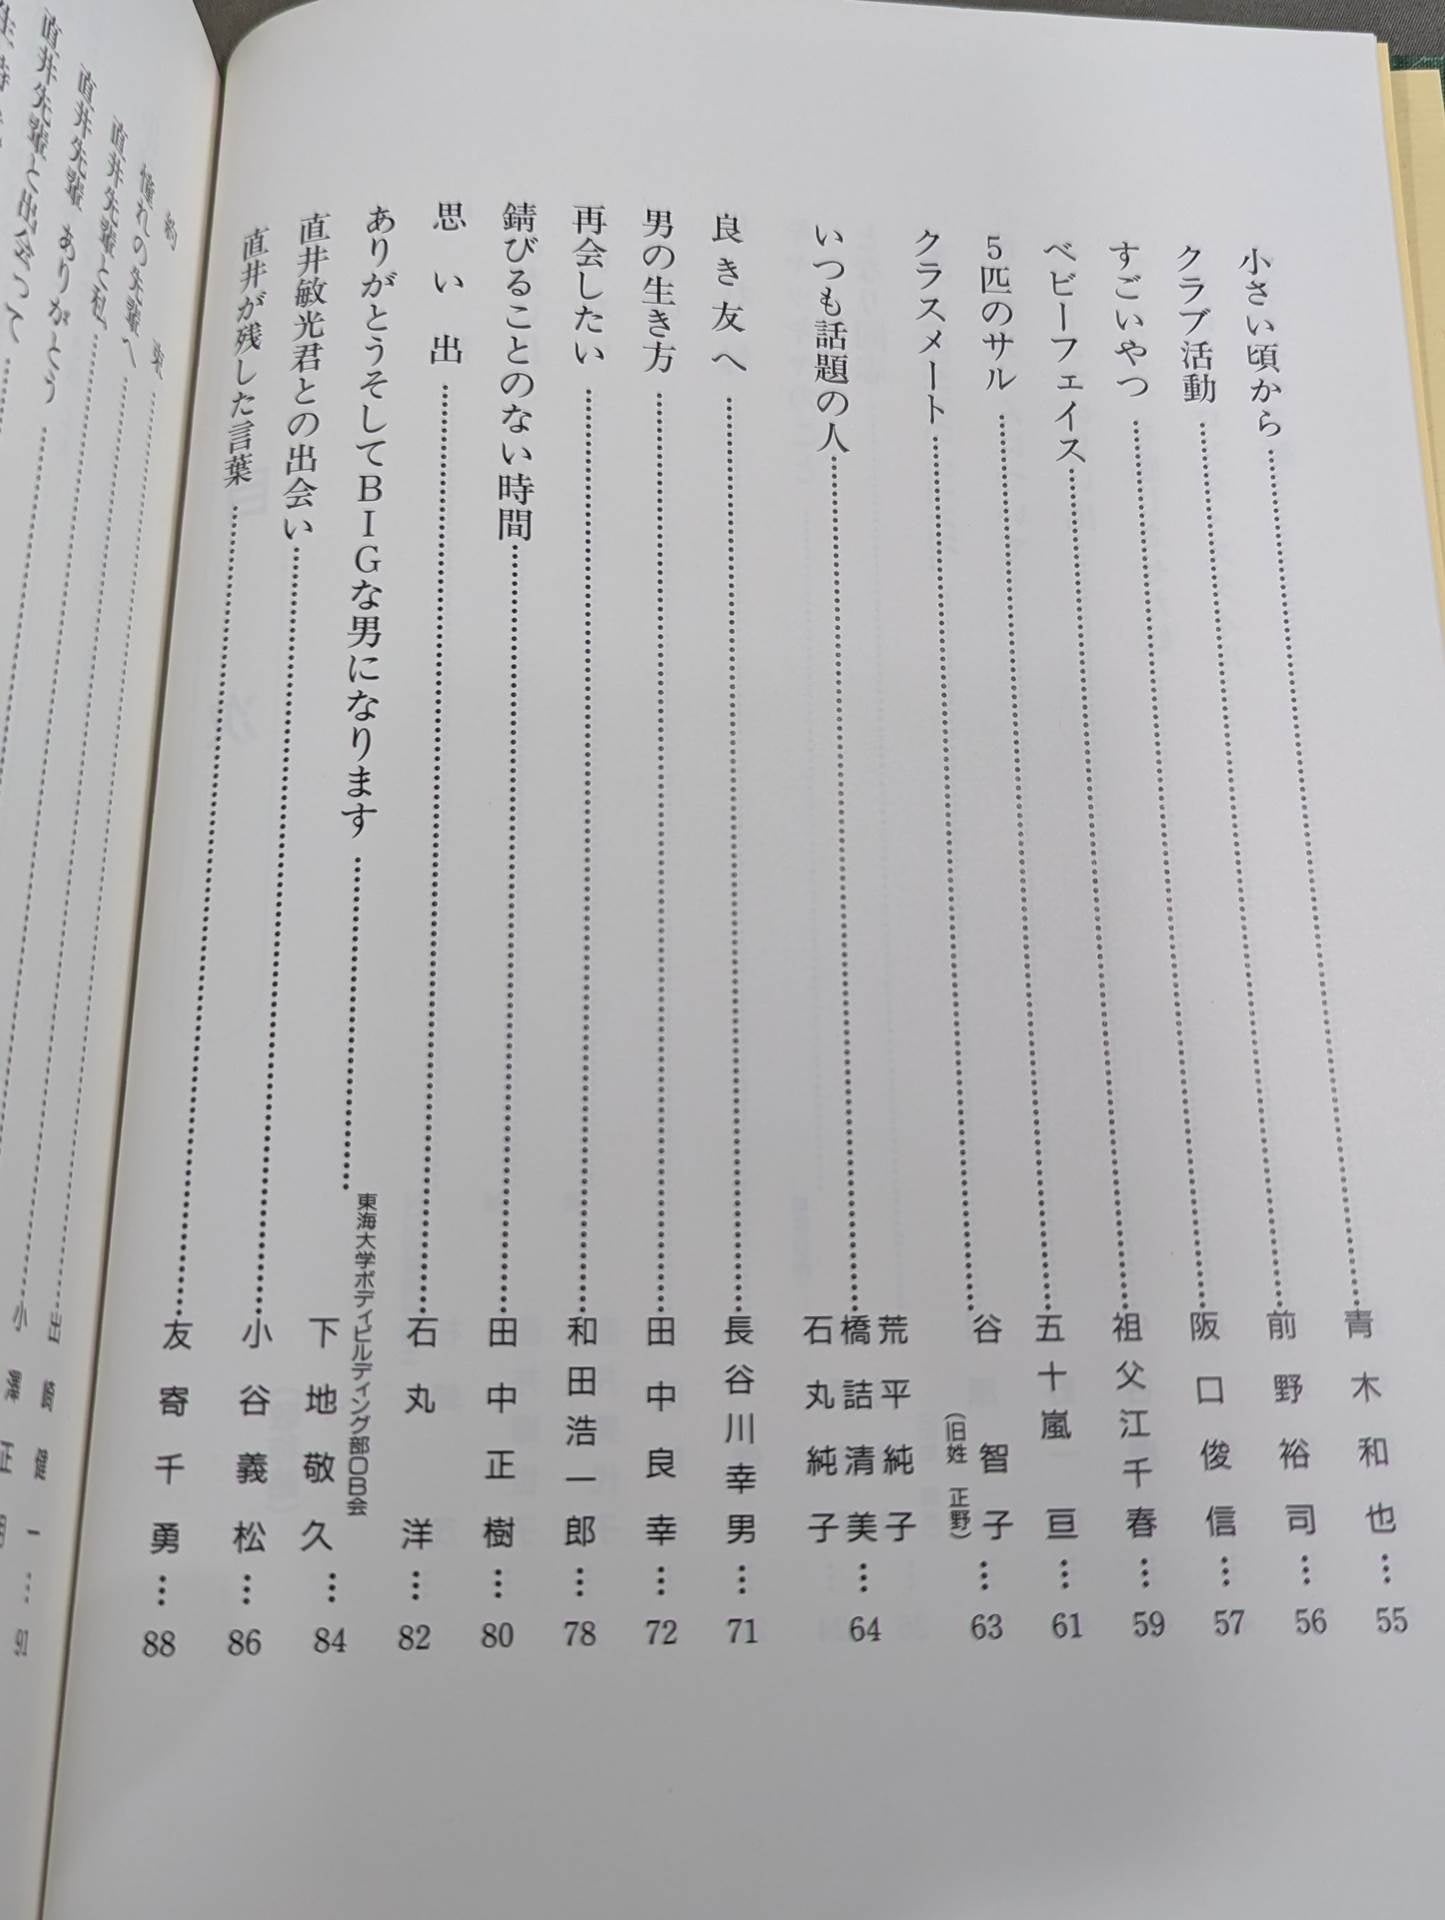 小さい頃から……青木和也…55
クラブ活動……前野裕司…56
すごいやつ……阪口俊信…57
ベビーフェイス……祖父江千春…59
5匹のサル……五十嵐一亘…61
クラスメート……谷智子(旧姓 正野)…63
いつも話題の人……荒平純子 橋詰清美 石丸純子…64
良き友へ……長谷川幸男…71
男の生き方……田中良幸…72
再会したい……和田浩一郎…78
錆びることのない時間……田中正樹…80
思い出……石丸洋…82
ありがとうそしてBIGな男になります……東海大学ボディビルディング部OB会 下地敬久…84
直井敏光君との出会い……小谷義松…86
直井が残した言葉……友寄千勇…88
約束……出崎健一…91
憧れの先輩へ……小澤正明
直井先輩と私……
直井先輩 ありがとう……
直井先輩と出会って……